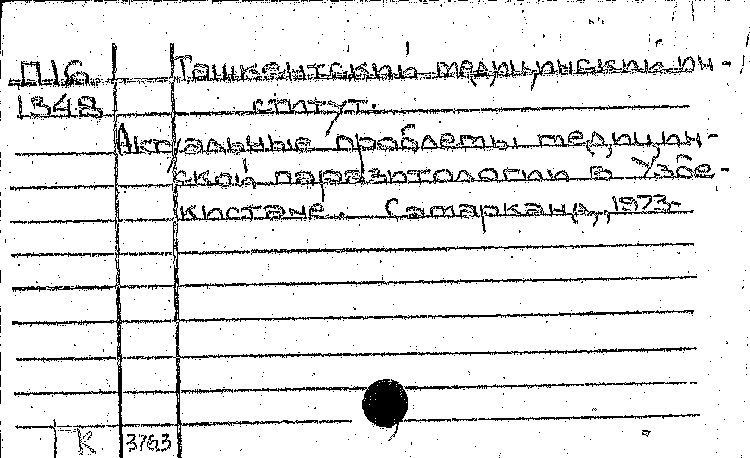 П16 Ташкентский медицинский ин-
1348 ститут.
Актуальные проблемы медицин-
ской паразитологии в Узбе-
кистане. Самарканд, 1973-
К 3763